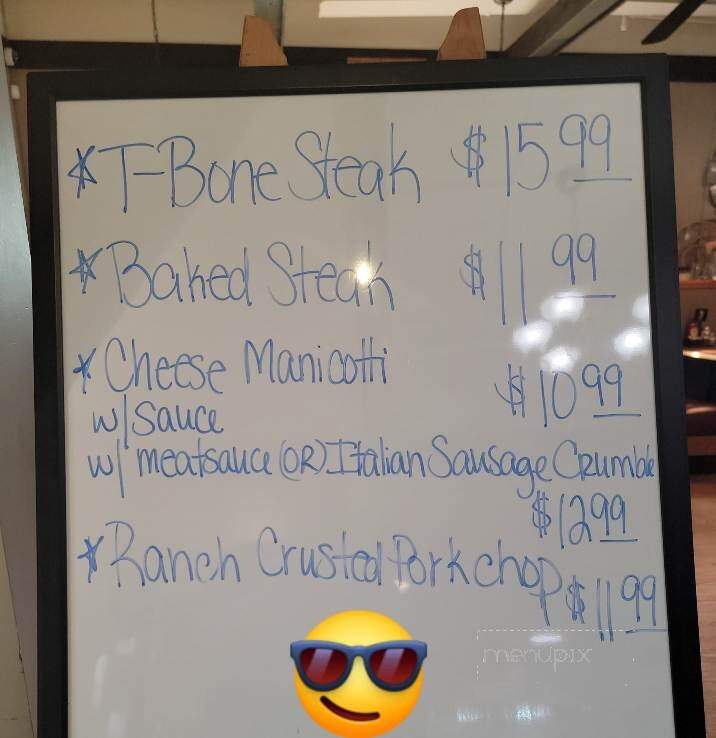 *T-Bone Steak $15 99
*Baked Steak $11 99
*Cheese Manicotti
w/sauce $10 99
w/ meatsauce (OR) Italian Sausage Crumble
$12 99
*Ranch Crusted Pork chop $11 99
menupix